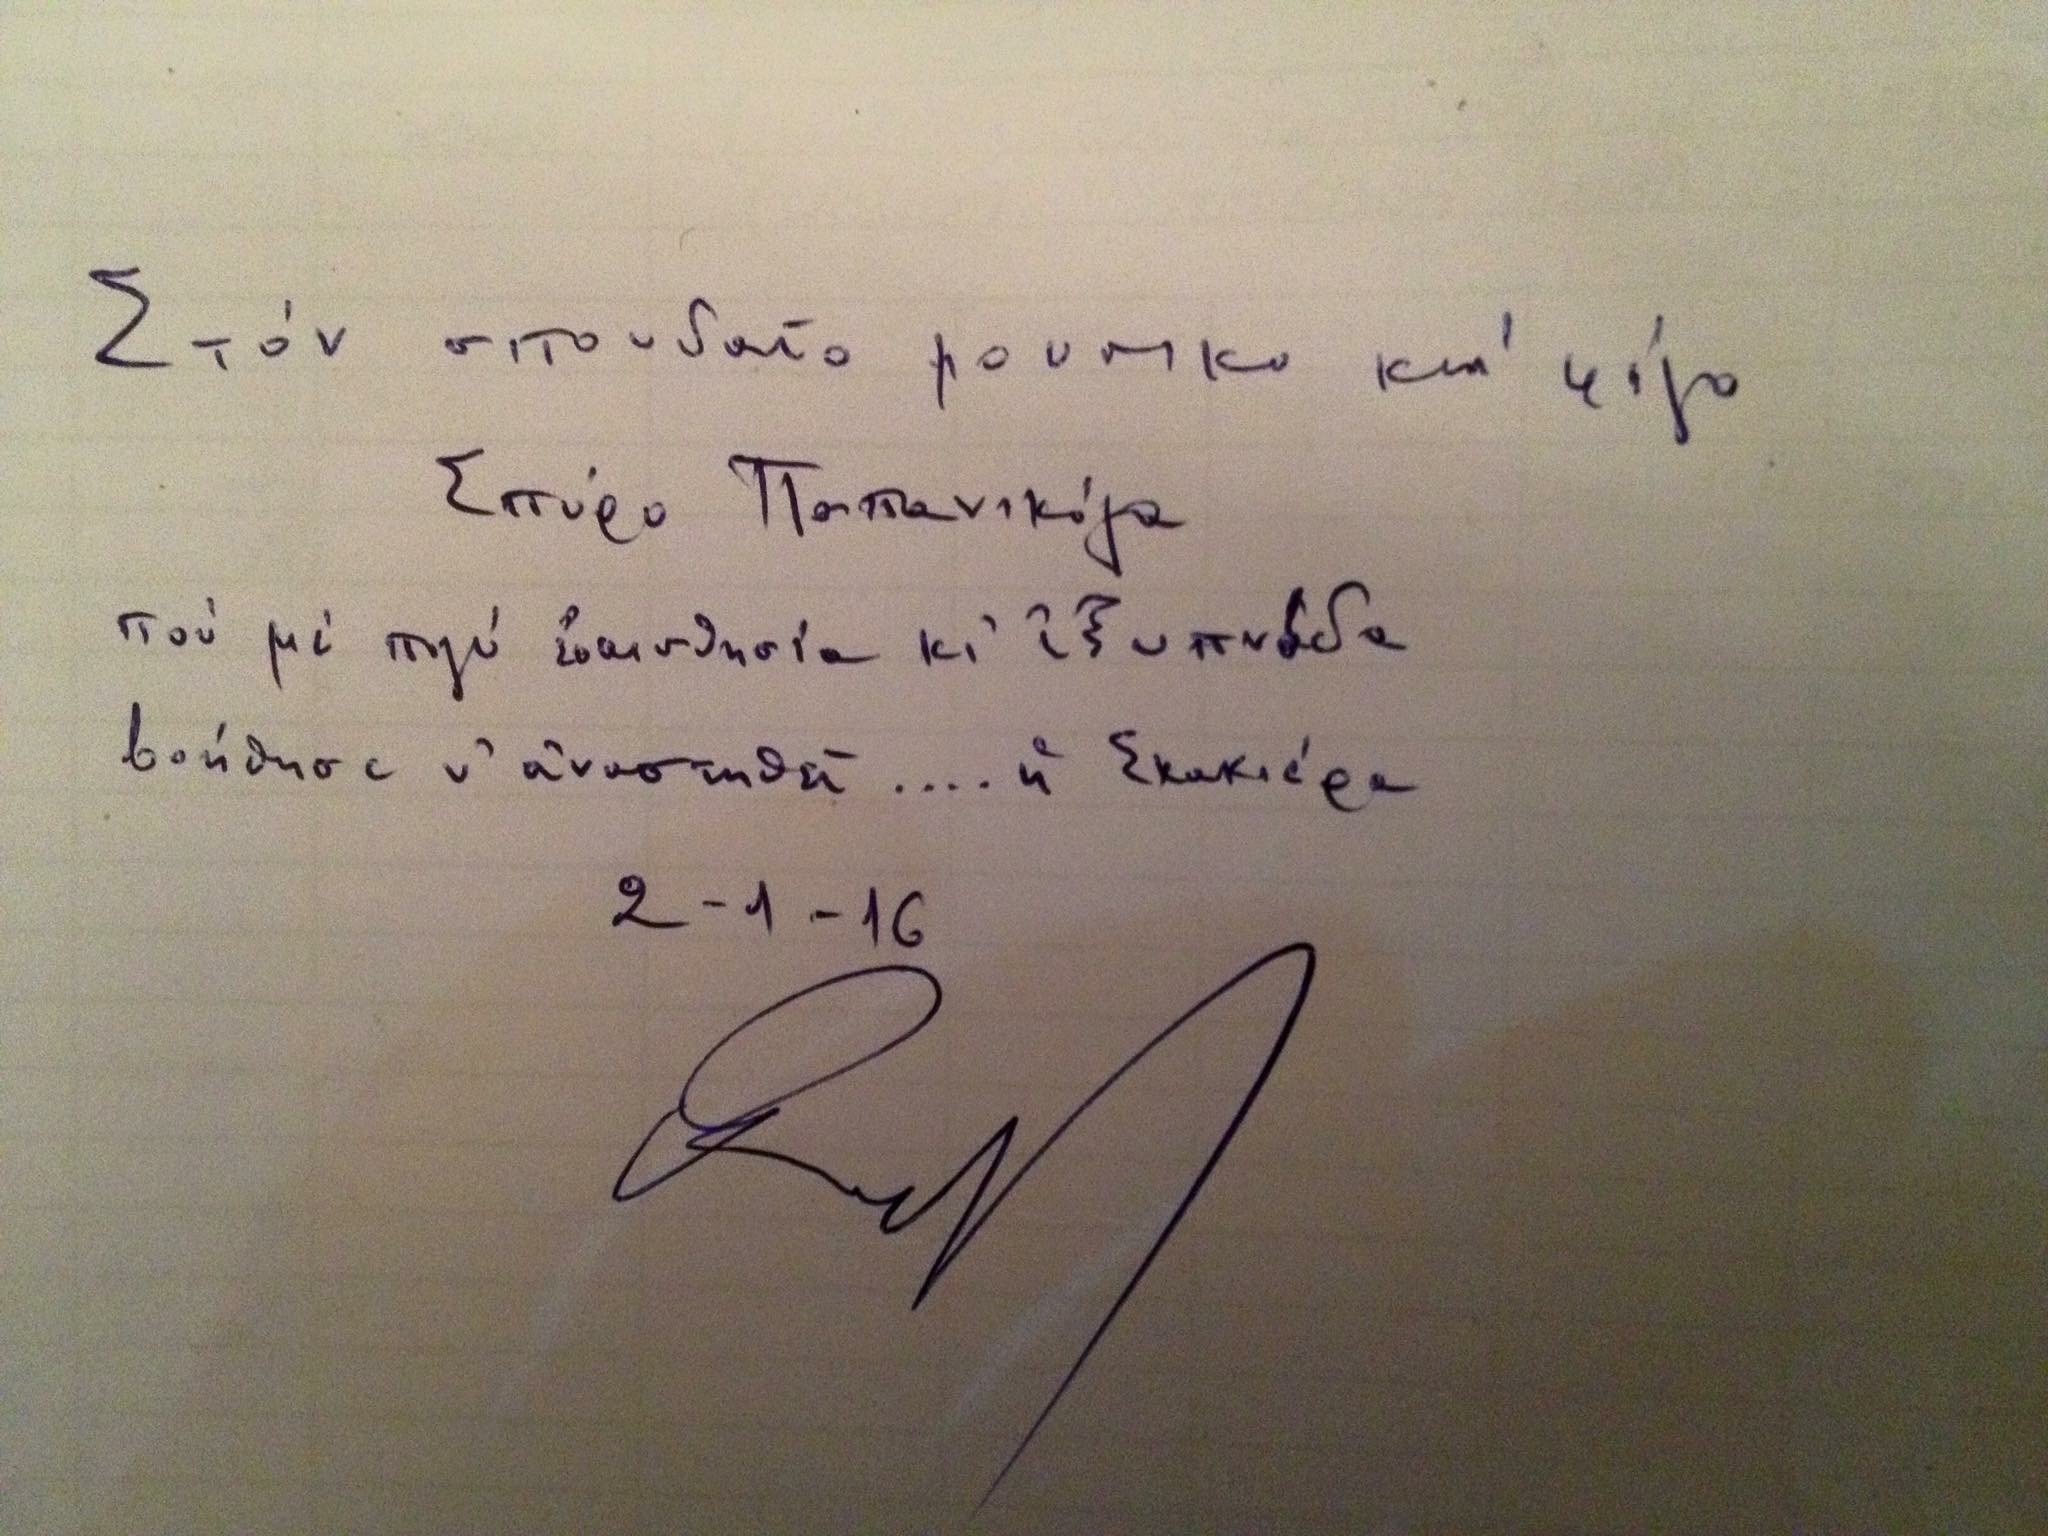 Στόν σπουδαῖο μουσικό καί φίλο
Σπύρο Παπανικόλα
πού μέ πολύ εὐαισθησία κι' ἐξυπνάδα
βοήθησε ν' ἀναστηθῆ .... ἡ Σκακιέρα
2-1-16